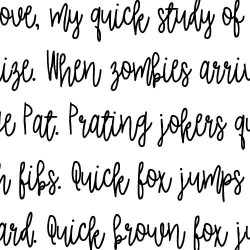 ove, my quick study of
ize. When zombies arriv
e Pat. Prating jokers qu
h fibs. Quick fox jumps
ard. Quick brown fox ju